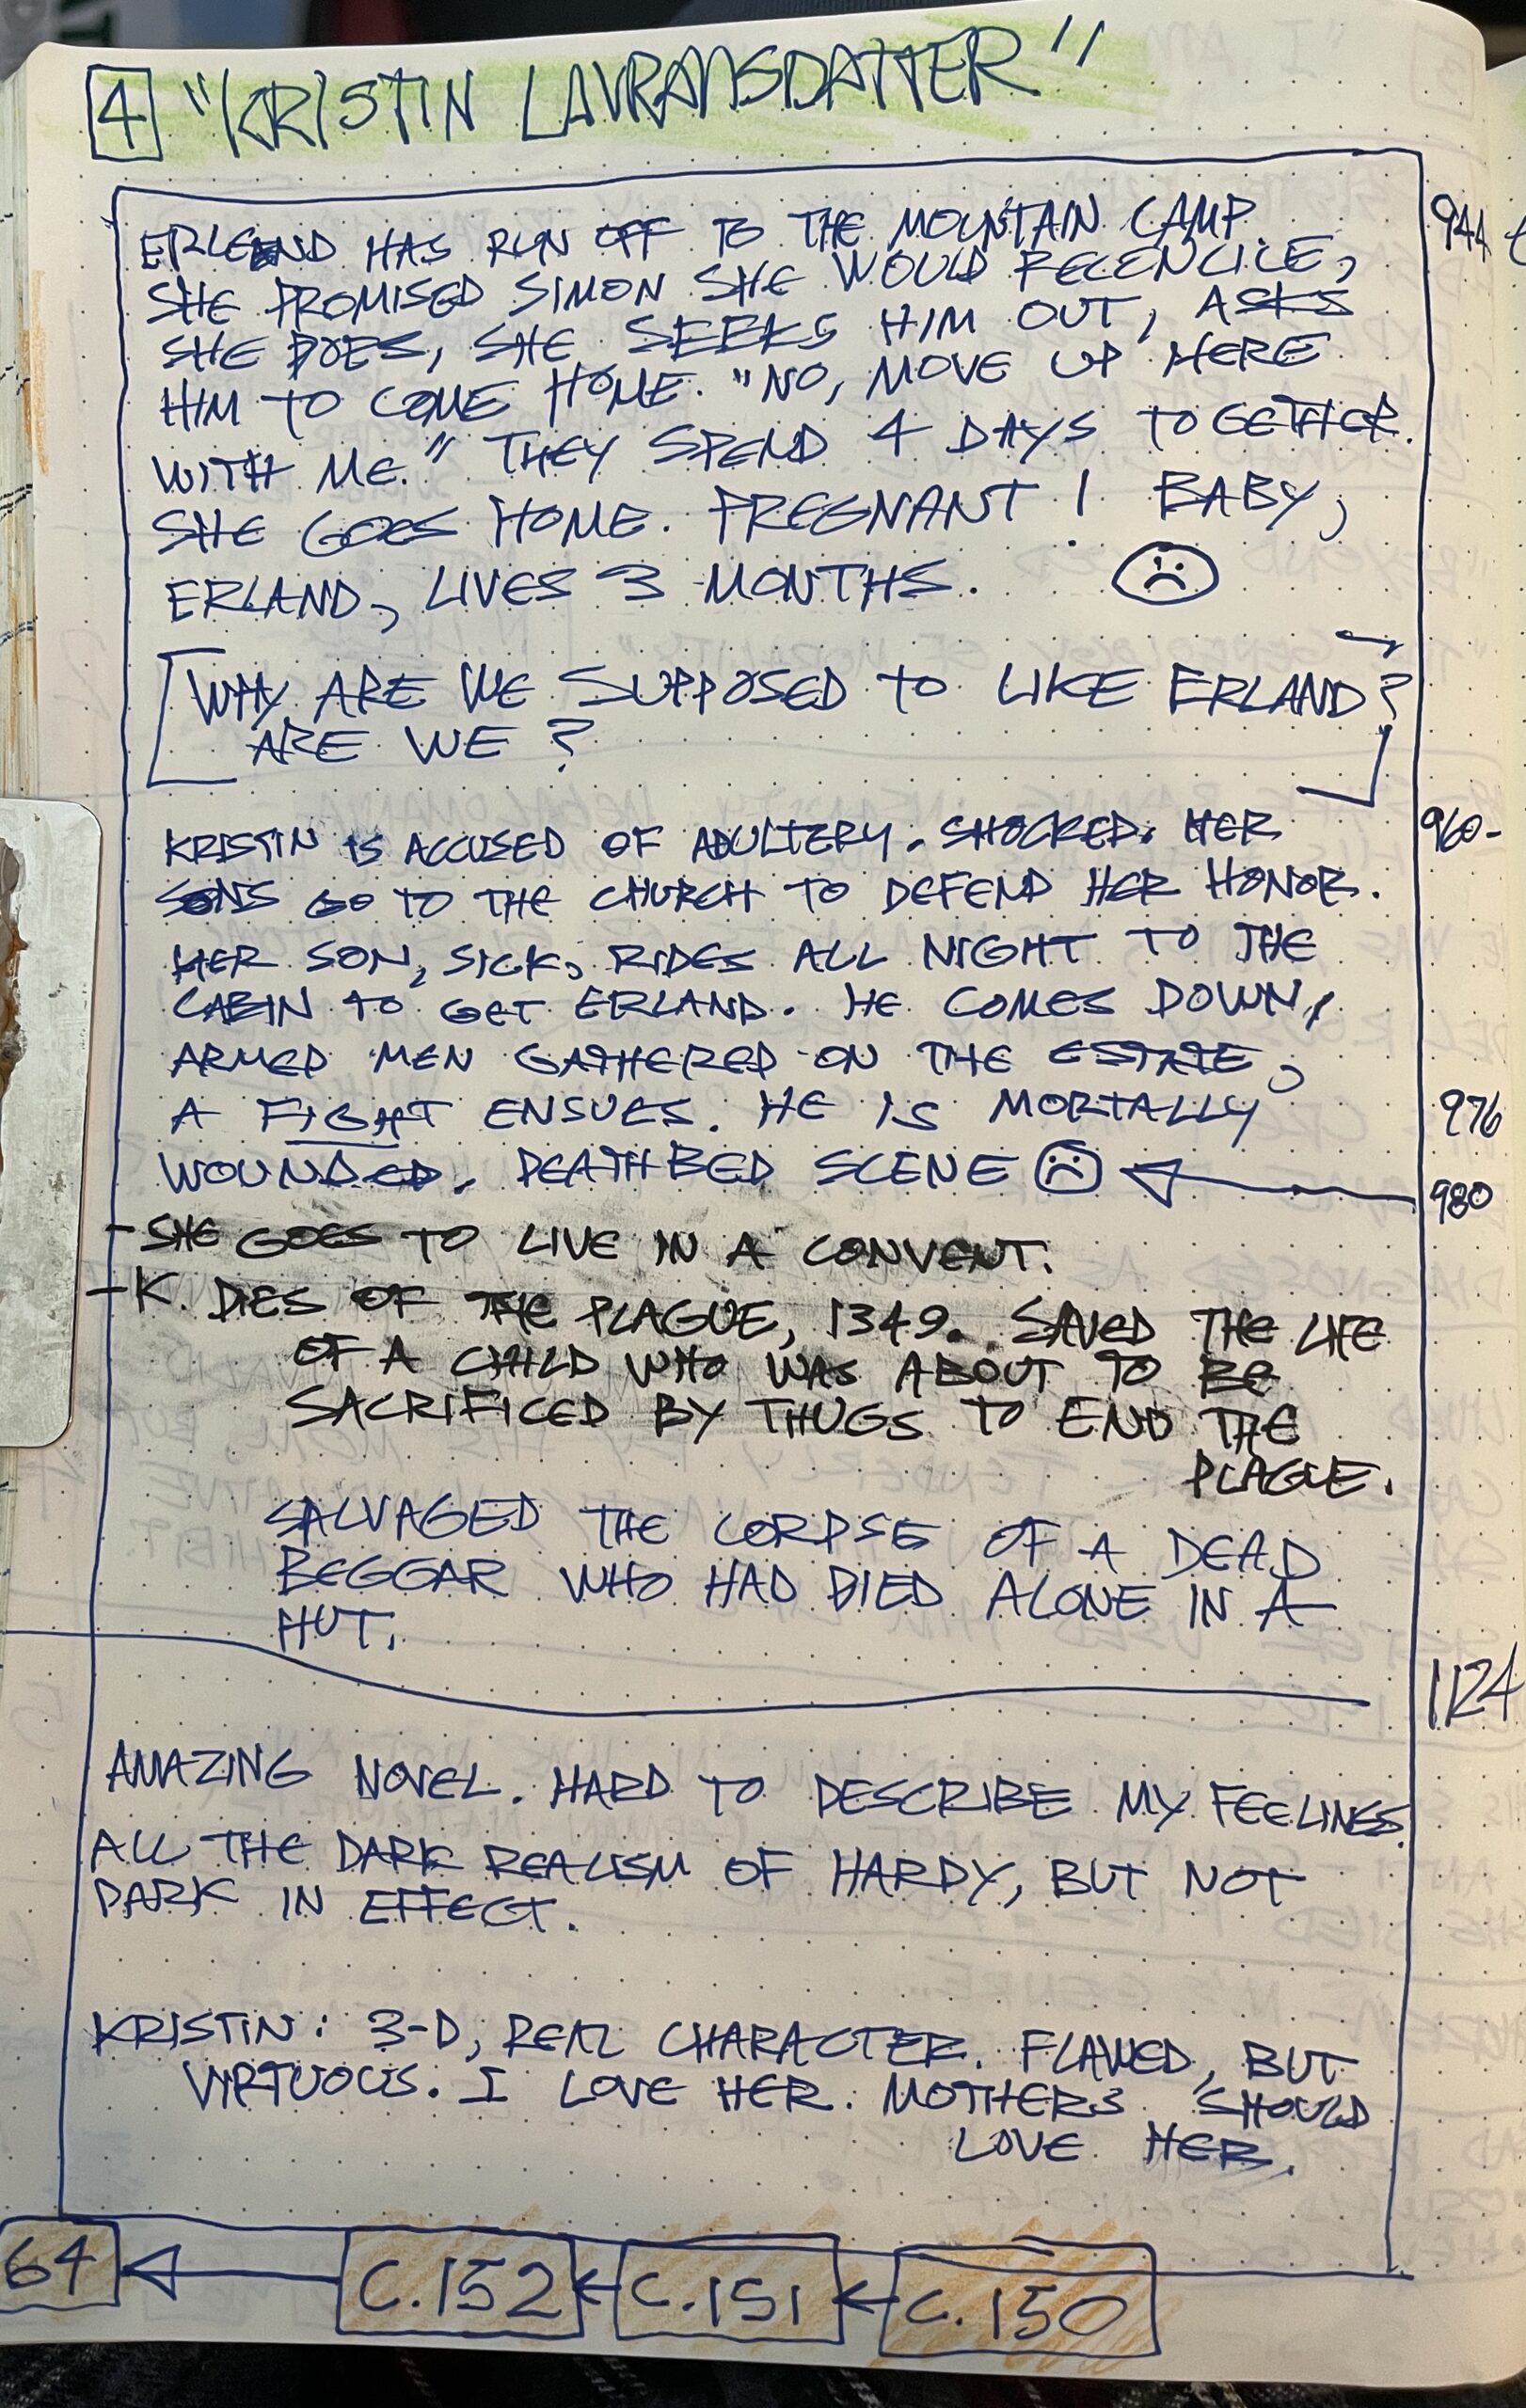 4 "KRISTIN LAVRANSDATTER"
ERLEND HAS RUN OFF TO THE MOUNTAIN CAMP. 944
SHE PROMISED SIMON SHE WOULD RECENCILE,
SHE DOES, SHE SEEKS HIM OUT, ASKS
HIM TO COME HOME. "NO, MOVE UP HERE
WITH ME." THEY SPEND 4 DAYS TOGETHER.
SHE GOES HOME. PREGNANT! BABY,
ERLAND, LIVES 3 MONTHS.
WHY ARE WE SUPPOSED TO LIKE ERLAND?
ARE WE?
KRISTIN IS ACCUSED OF ADULTERY. SHOCKED. HER 960-
SONS GO TO THE CHURCH TO DEFEND HER HONOR.
HER SON, SICK, RIDES ALL NIGHT TO THE
CABIN TO GET ERLAND. HE COMES DOWN,
ARMED MEN GATHERED ON THE ESTATE,
A FIGHT ENSUES. HE IS MORTALLY 976
WOUNDED. DEATHBED SCENE 980
- SHE GOES TO LIVE IN A CONVENT.
- K. DIES OF THE PLAGUE, 1349. SAVED THE LIFE
OF A CHILD WHO WAS ABOUT TO BE
SACRIFICED BY THUGS TO END THE
PLAGUE.
SALVAGED THE CORPSE OF A DEAD
BEGGAR WHO HAD DIED ALONE IN A
HUT.
1124
AMAZING NOVEL. HARD TO DESCRIBE MY FEELINGS.
ALL THE DARK REALISM OF HARDY, BUT NOT
DARK IN EFFECT.
KRISTIN: 3-D, REAL CHARACTER. FLAWED, BUT
VIRTUOUS. I LOVE HER. MOTHERS SHOULD
LOVE HER.
64 C.152 C.151 C.150